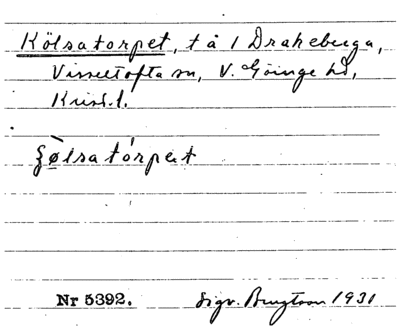 Kölsatorpet, t å 1 Drakeberga,
Visseltofta sn, V. Göinge hd,
Krist. l.
ʒølsatórpət
Nr 5392. Sigv. Bengtson 1931